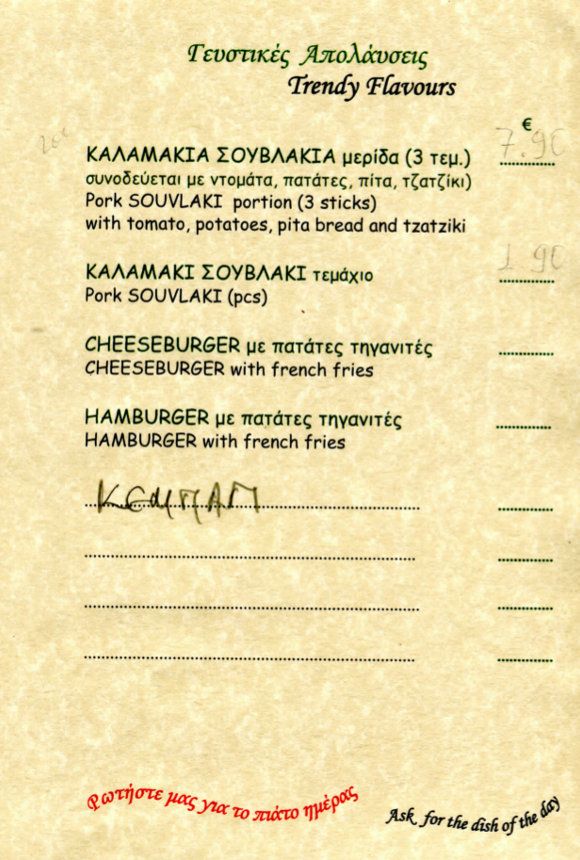 Γευστικές Απολάυσεις
Trendy Flavours
€
ΚΑΛΑΜΑΚΙΑ ΣΟΥΒΛΑΚΙΑ μερίδα (3 τεμ.) 7.90
συνοδεύεται με ντομάτα, πατάτες, πίτα, τζατζίκι)
Pork SOUVLAKI portion (3 sticks)
with tomato, potatoes, pita bread and tzatziki
ΚΑΛΑΜΑΚΙ ΣΟΥΒΛΑΚΙ τεμάχιο 1 90
Pork SOUVLAKI (pcs)
CHEESEBURGER με πατάτες τηγανιτές
CHEESEBURGER with french fries
HAMBURGER με πατάτες τηγανιτές
HAMBURGER with french fries
ΚΕΜΠΑΠ
Ρωτήστε μας για το πιάτο ημέρας
Ask for the dish of the day